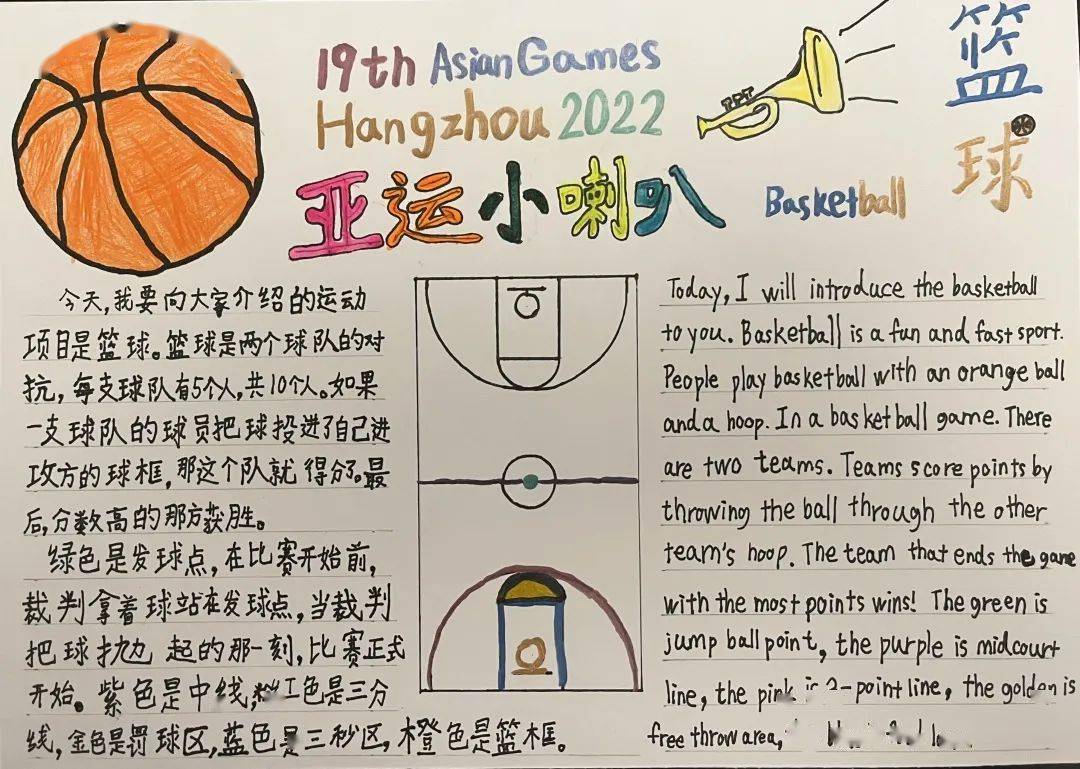 19th Asian Games
Hangzhou 2022
亚运小喇叭
Basketball
篮
球
今天,我要向大家介绍的运动
项目是篮球。篮球是两个球队的对
抗,每支球队有5个人,共10个人。如果
一支球队的球员把球投进了自己进
攻方的球框,那这个队就得分了。最
后,分数高的那方获胜。
绿色是发球点,在比赛开始前,
裁判拿着球站在发球点,当裁判
把球抛起的那一刻,比赛正式
开始。紫色是中线,粉红色是三分
线,金色是罚球区,蓝色是三秒区,橙色是篮框。
Today, I will introduce the basketball
to you. Basketball is a fun and fast sport.
People play basketball with an orange ball
and a hoop. In a basketball game. There
are two teams. Teams score points by
throwing the ball through the other
team's hoop. The team that ends the game
with the most points wins! The green is
jump ball point, the purple is midcourt
line, the pink -point line, the golden is
free throw area,